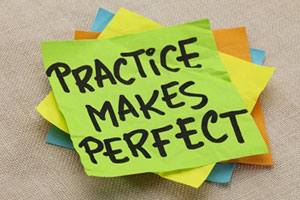 PRACTICE
MAKES
PERFECT